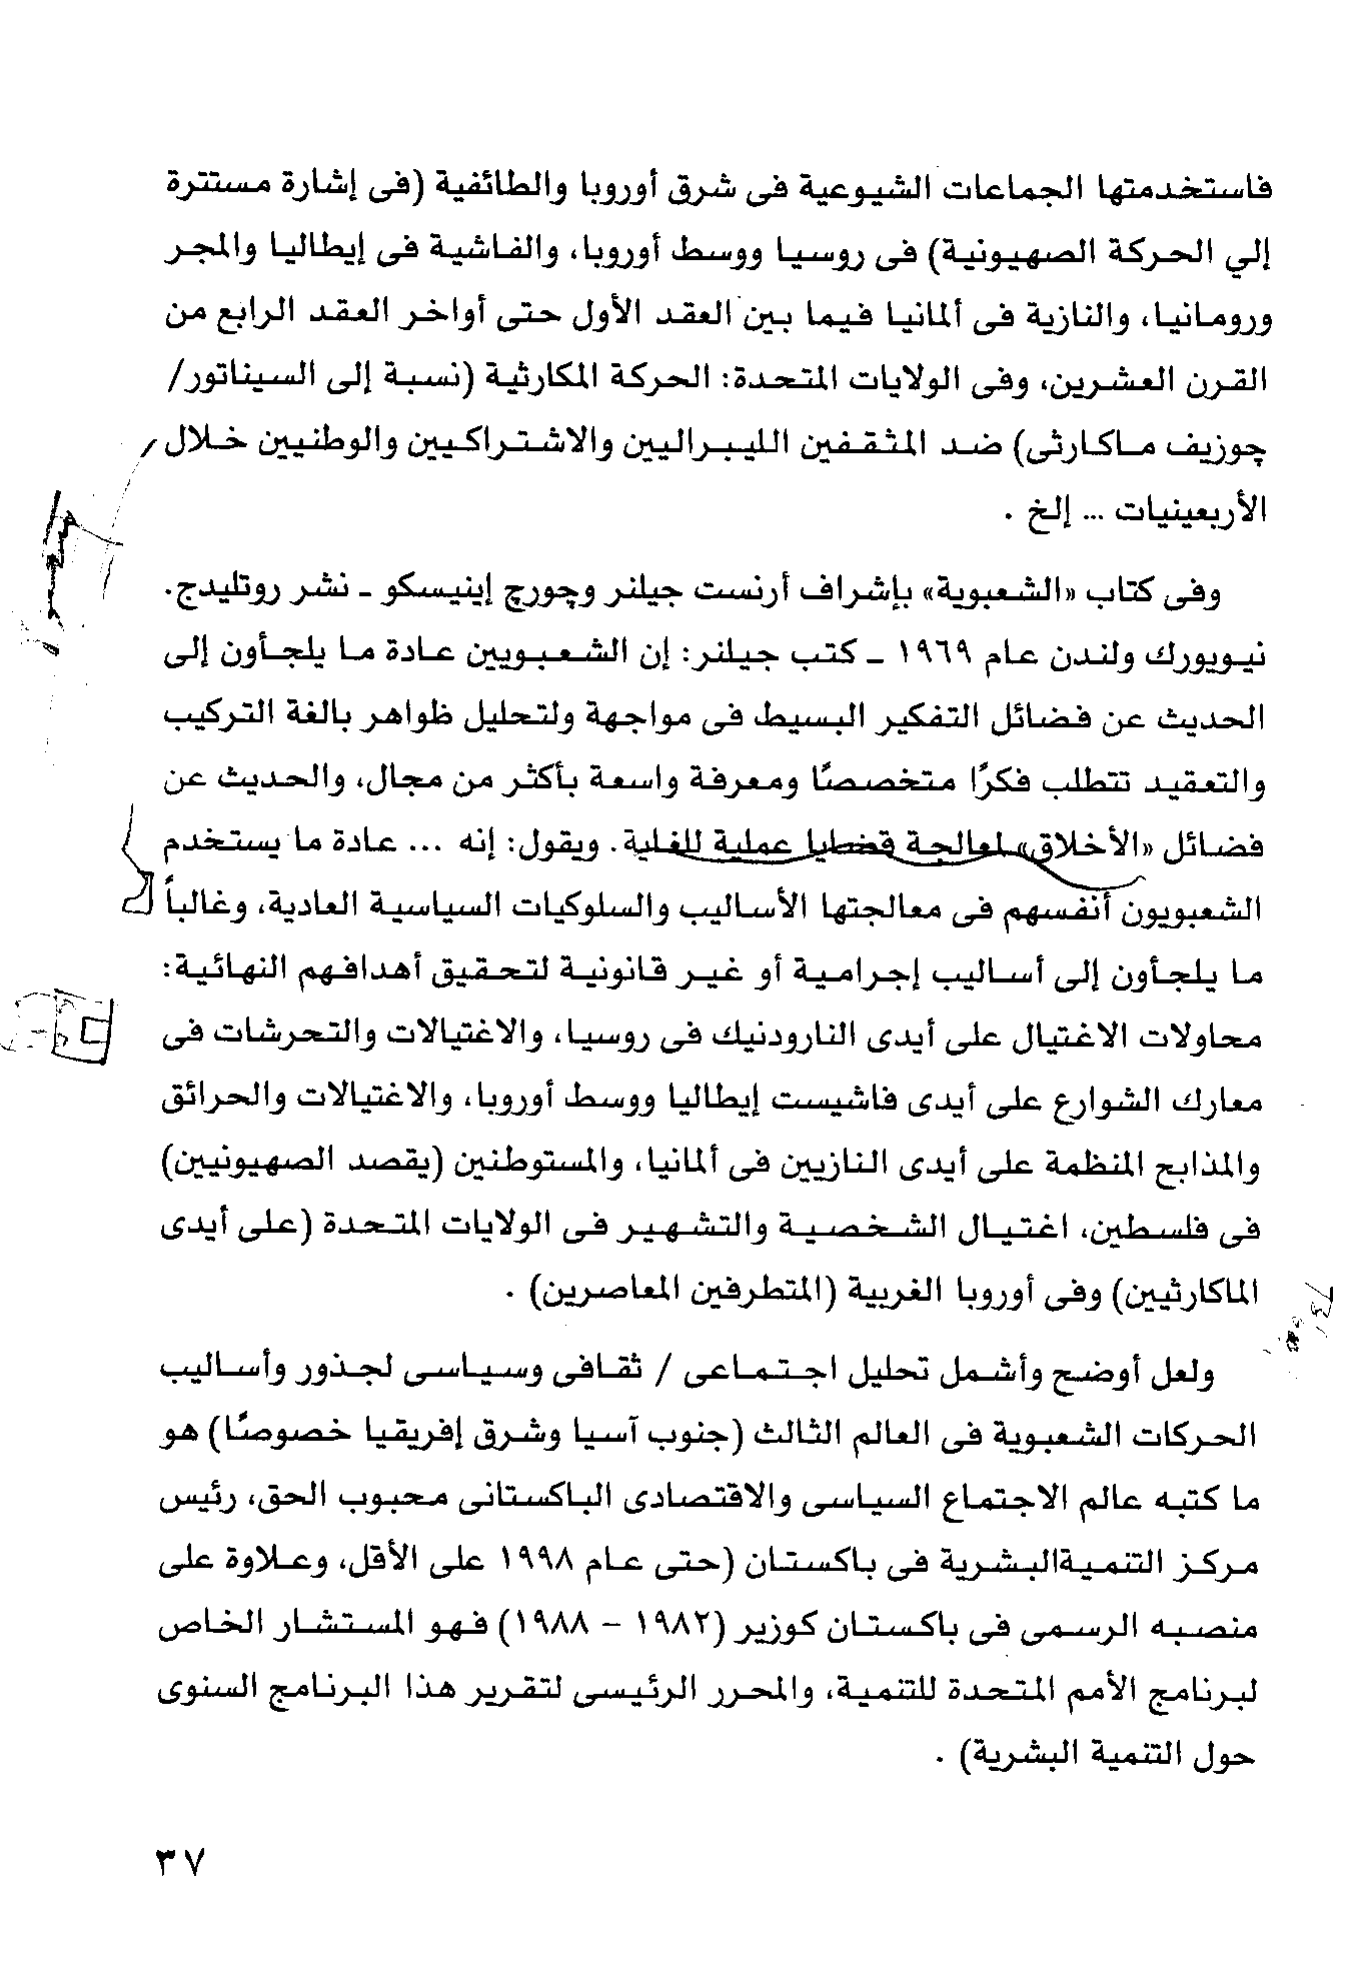 فاستخدمتها الجماعات الشيوعية فى شرق أوروبا والطائفية (فى إشارة مستترة
إلي الحركة الصهيونية) فى روسيا ووسط أوروبا، والفاشية فى إيطاليا والمجر
ورومانيا، والنازية فى ألمانيا فيما بين العقد الأول حتى أواخر العقد الرابع من
القرن العشرين، وفى الولايات المتحدة: الحركة المكارثية (نسبة إلى السيناتور/
چوزيف ماكارثى) ضد المثقفين الليبراليين والاشتراكيين والوطنيين خلال
الأربعينيات ... إلخ .
وفى كتاب «الشعبوية» بإشراف أرنست جيلنر وچورچ إينيسكو ـ نشر روتليدج.
نيويورك ولندن عام ١٩٦٩ ـ كتب جيلنر: إن الشعبويين عادة ما يلجأون إلى
الحديث عن فضائل التفكير البسيط فى مواجهة ولتحليل ظواهر بالغة التركيب
والتعقيد تتطلب فكرًا متخصصًا ومعرفة واسعة بأكثر من مجال، والحديث عن
فضائل «الأخلاق» لمعالجة قضطايا عملية للغاية. ويقول: إنه ... عادة ما يستخدم
الشعبويون أنفسهم فى معالجتها الأساليب والسلوكيات السياسية العادية، وغالباً
ما يلجأون إلى أساليب إجرامية أو غير قانونية لتحقيق أهدافهم النهائية:
محاولات الاغتيال على أيدى النارودنيك فى روسيا، والاغتيالات والتحرشات فى
معارك الشوارع على أيدى فاشيست إيطاليا ووسط أوروبا، والاغتيالات والحرائق
والمذابح المنظمة على أيدى النازيين فى ألمانيا، والمستوطنين (يقصد الصهيونيين)
فى فلسطين، اغتيال الشخصية والتشهير فى الولايات المتحدة (على أيدى
الماكارثيين) وفى أوروبا الغربية (المتطرفين المعاصرين) .
ولعل أوضح وأشمل تحليل اجتماعى / ثقافى وسياسى لجذور وأساليب
الحركات الشعبوية فى العالم الثالث (جنوب آسيا وشرق إفريقيا خصوصًا) هو
ما كتبه عالم الاجتماع السياسى والاقتصادى الباكستانى محبوب الحق، رئيس
مركز التنميةالبشرية فى باكستان (حتى عام ١٩٩٨ على الأقل، وعلاوة على
منصبه الرسمى فى باكستان كوزير (١٩٨٢ - ١٩٨٨) فهو المستشار الخاص
لبرنامج الأمم المتحدة للتنمية، والمحرر الرئيسى لتقرير هذا البرنامج السنوى
حول التنمية البشرية) .
٣٧